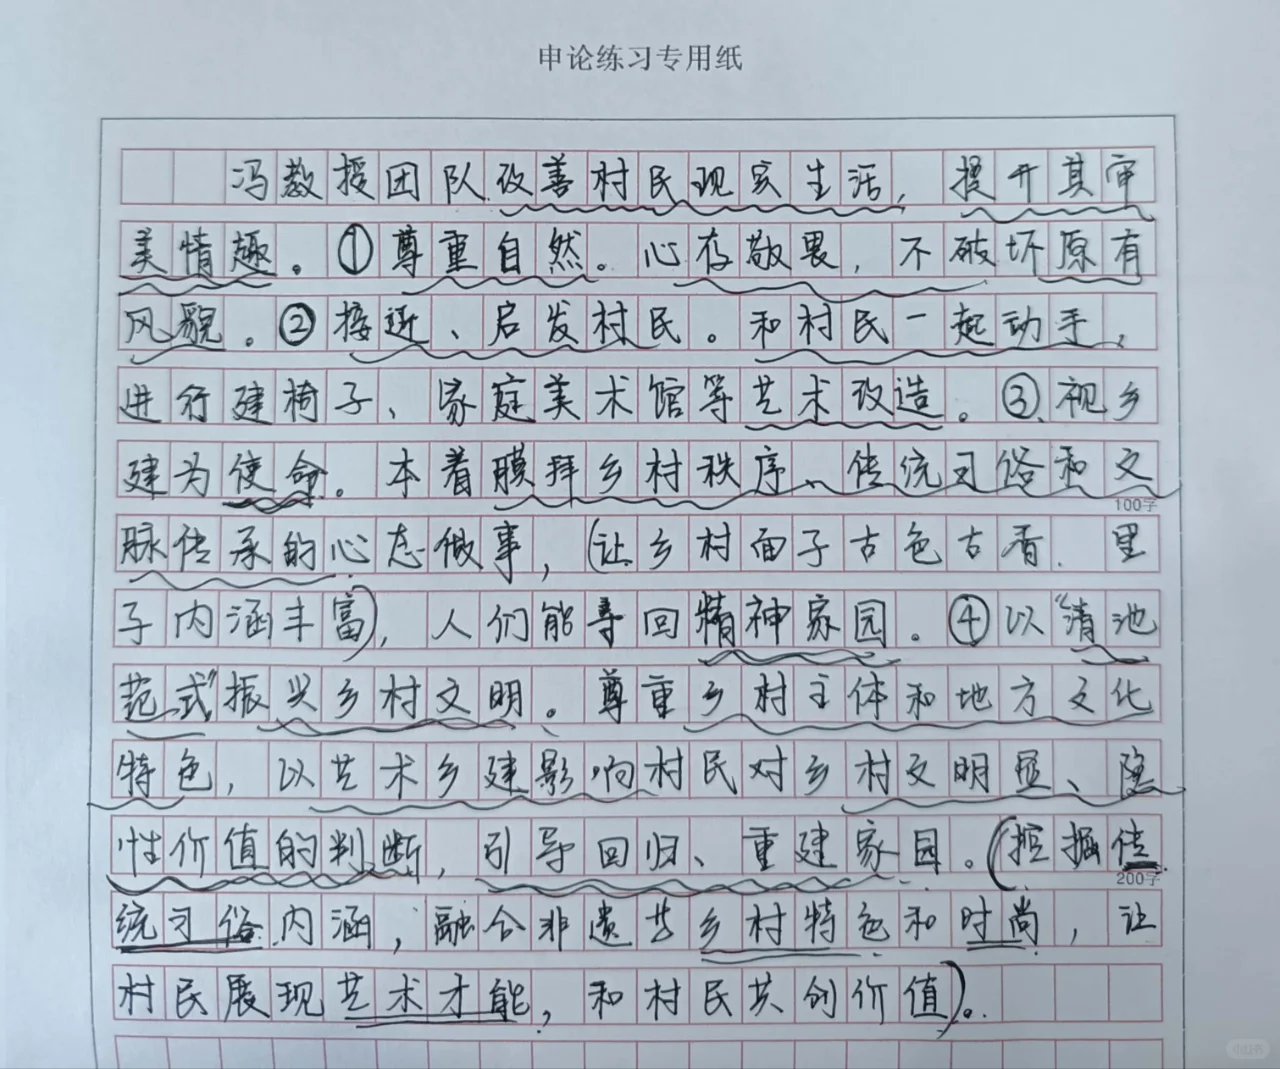 申论练习专用纸
冯教授团队改善村民现实生活，提升其审
美情趣。①尊重自然。心存敬畏，不破坏原有
风貌。②接近、启发村民。和村民一起动手，
进行建椅子、家庭美术馆等艺术改造。③视乡
建为使命。本着膜拜乡村秩序、传统习俗和文
100字
脉传承的心态做事，(让乡村面子古色古香、里
子内涵丰富)，人们能寻回精神家园。④以“清池
范式”振兴乡村文明。尊重乡村主体和地方文化
特色，以艺术乡建影响村民对乡村文明显、隐
性价值的判断，引导回归、重建家园。(挖掘传
200字
统习俗内涵，融合非遗艺乡村特色和时尚，让
村民展现艺术才能，和村民共创价值)。
小红书